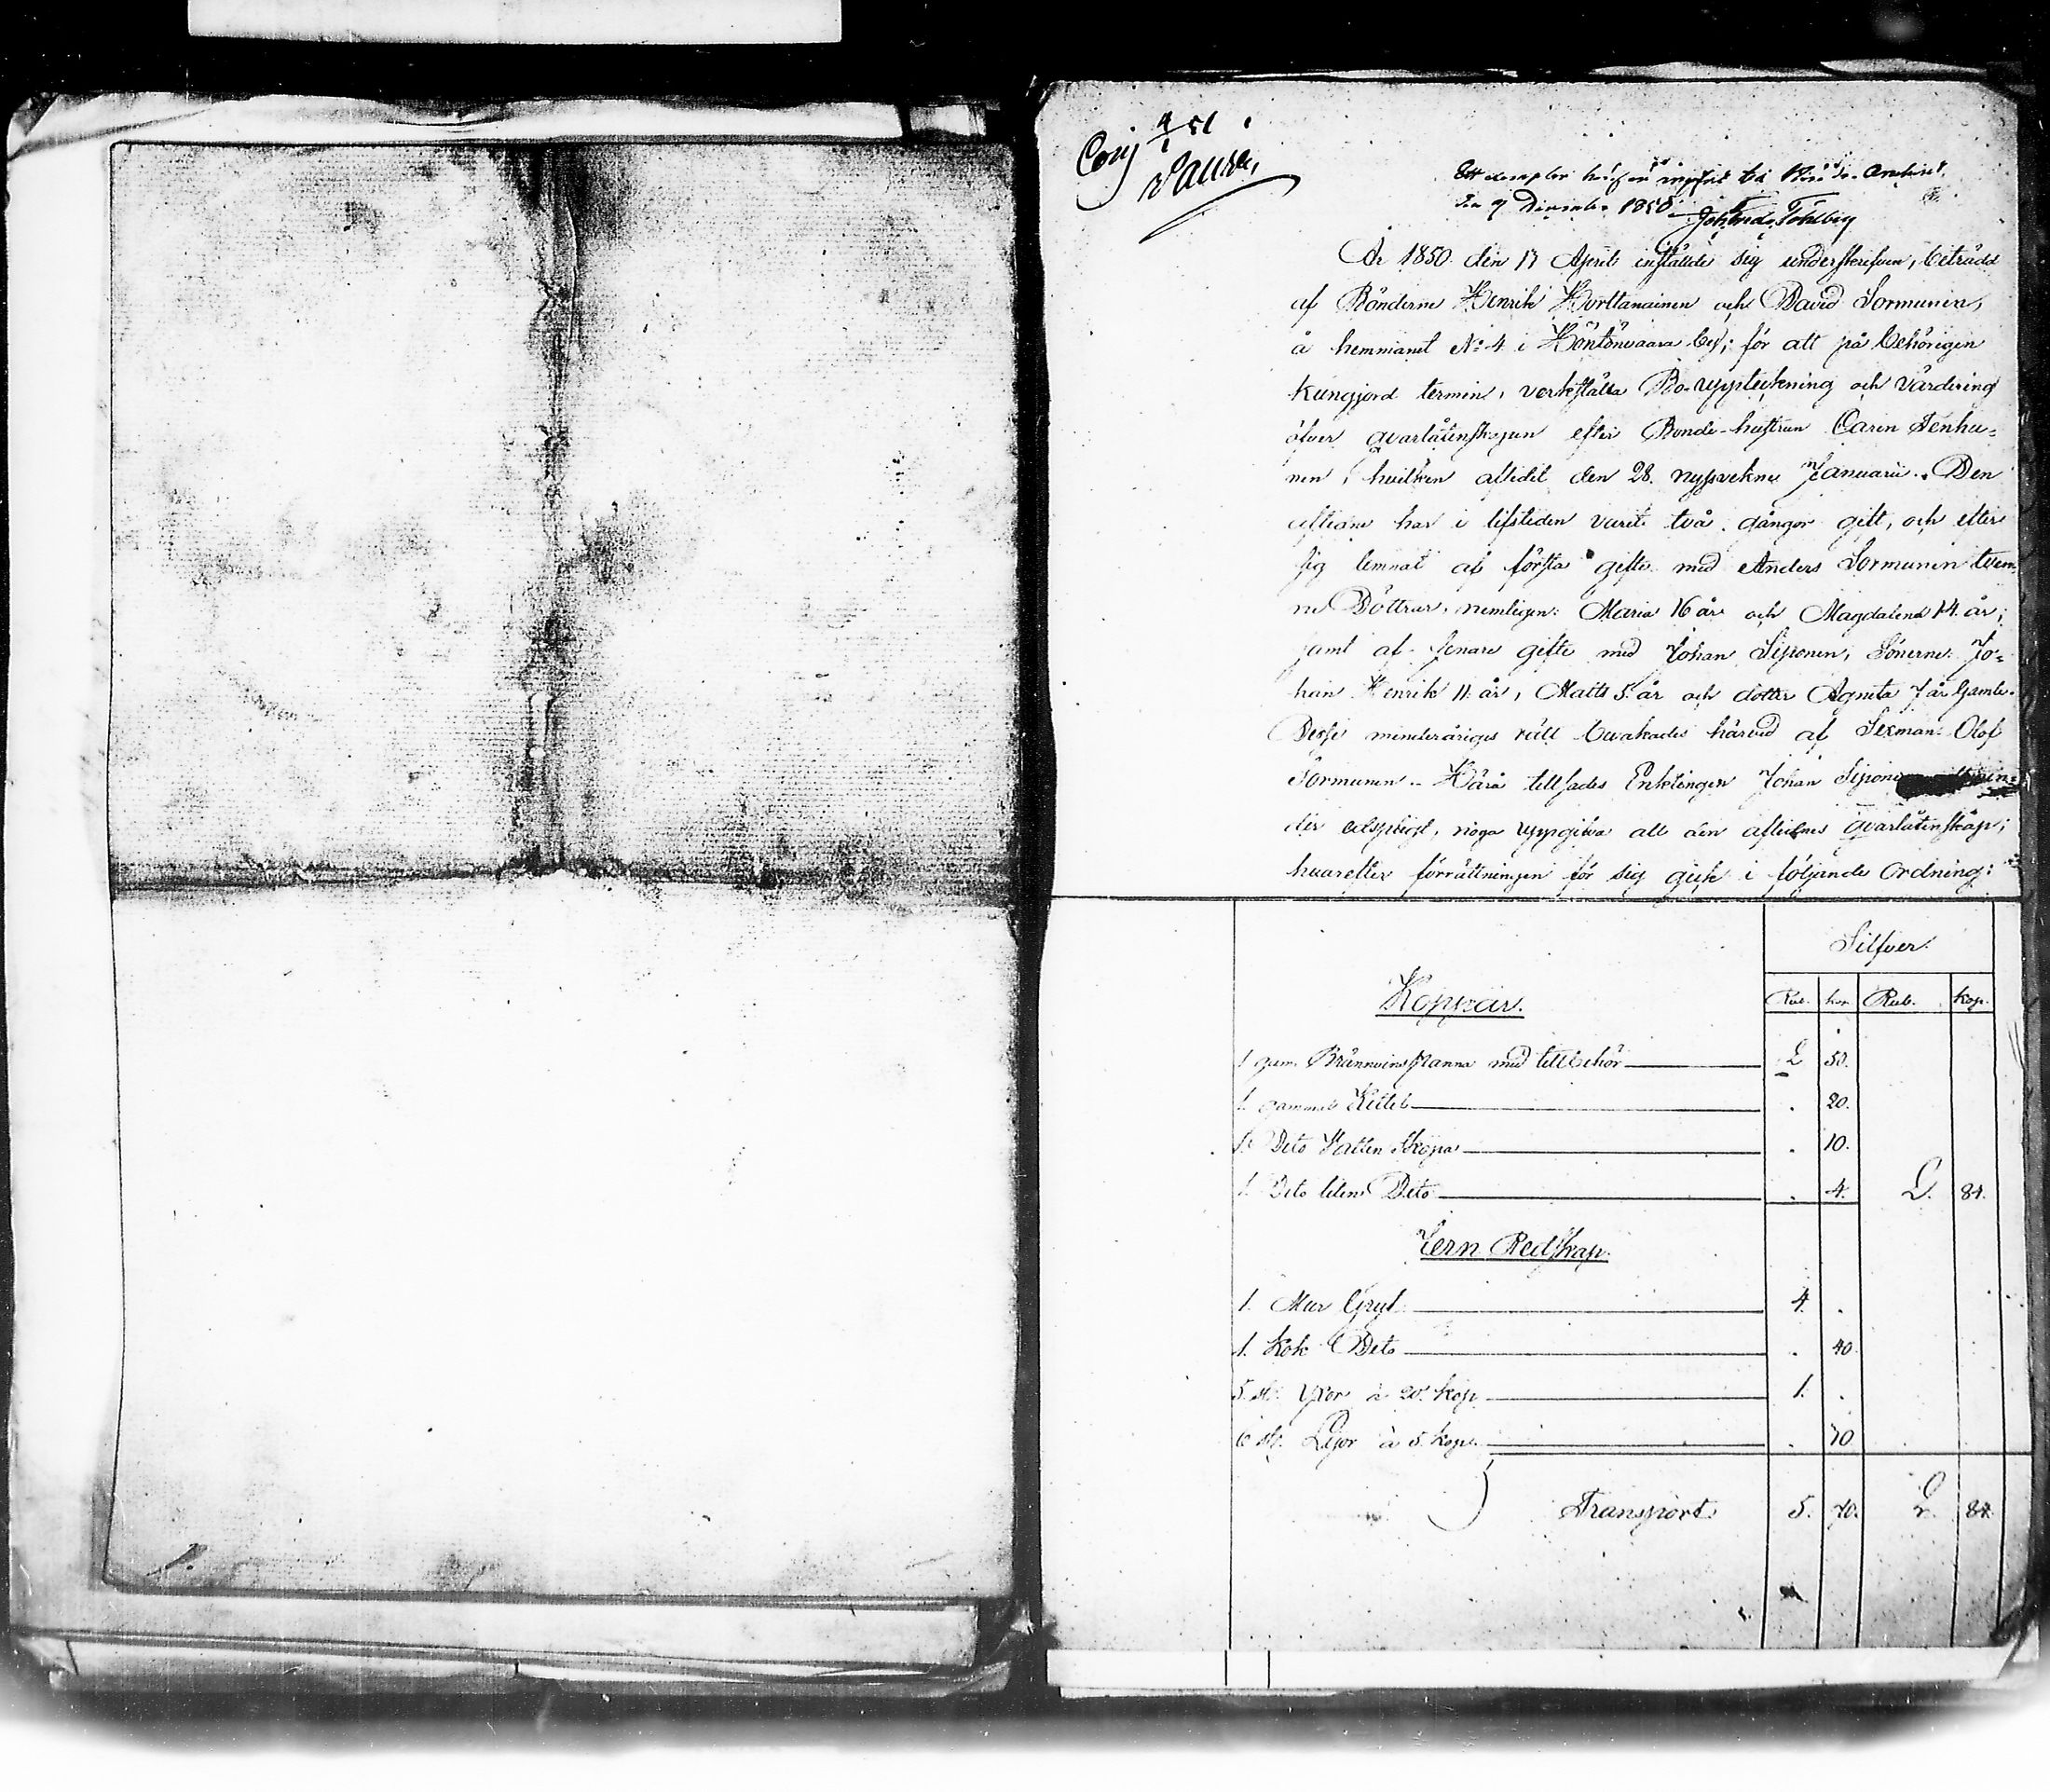 Ett exemplar häraf är ingifvit till
den 9 December 1850
År 1850 den 17 April inställde sig underskrifven, biträdd
af Bönderne Henrik Horttanainen och David Sormunen,
å hemmanet No 4 i Höntönvaara by; för att på behörigen
kungjord termin, verkställa Bo-uppteckning och värdering
öfver qvarlåtenskapen efter Bonde-hustrun Carin Tenhu-
nen, hvilken afledit den 28. nyssvekne Januarii. Den
aflidne har i lifstiden varit två gångor gift, och efter
sig lemnat af första gifte med Anders Sormunen tven-
ne Döttrar, nemligen: Maria 16 år och Magdalena 14 år;
samt af senare gifte med Johan Siponen, Sönerne: Jo-
han Henrik 11 år, Matts 5 år och dotter Agneta 7 år gamle.
Desse minderåriges rätt bevakades härvid af Sexman Olof
Sormunen. Härå tillsades Enklingen Johan Siponen
edspligt, noga uppgifva all den aflidnes qvarlåtenskap;
hvarefter förrättningen för sig gick i följande Ordning:
Silfver.
Kopkar.
Rub. kop. Rub. kop.
1 gam. Brännvins panna med tillbehör 2 50.
1. gammal Kittel . 20.
1. Dito Vatten Skopa . 10.
1. Dito liten Dito . 4. 2. 84.
Jern Redskap.
1. Mur Gryt 4. .
1. Kok Dito . 40.
5 st. Yxor à 20 kop. 1. .
6 st. Lijor à 5 kop. . 30
Transport 5. 70. 2. 84.